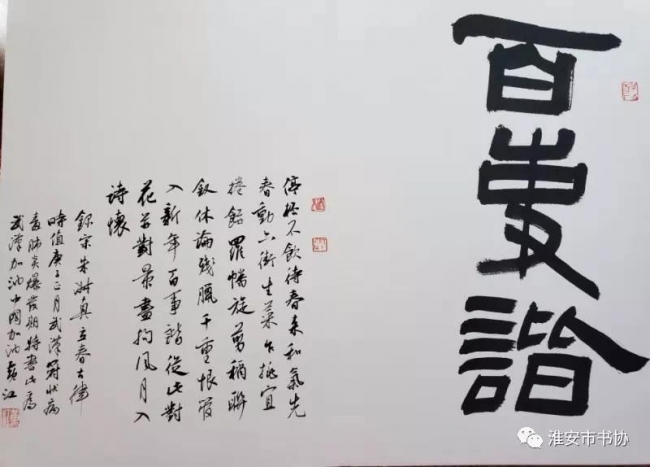 百事諧
停杯不飲待春来和氣先
春動六街生菜乍挑宜
捲餅羅幡旋剪稱聯
釵休論残臘千重恨管
入新年百事諧從此對
花並對景盡拘風月入
詩懷
録宋朱淑真立春古律
時值庚子正月武漢冠狀病
毒肺炎爆發期特書此爲
武漢加油中國加油
淮安市书协